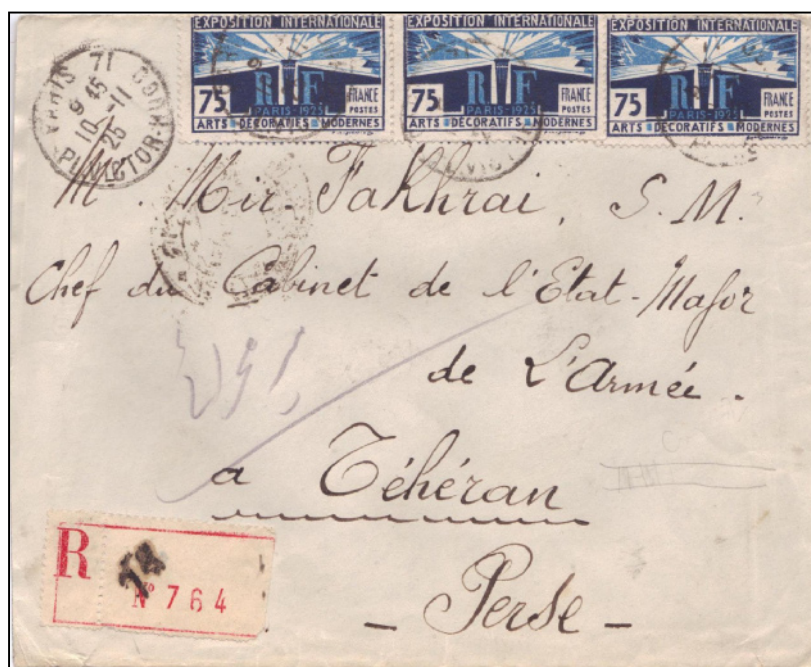 EXPOSITION INTERNATIONALE
75 RF FRANCE
POSTES
PARIS-1925
ARTS DÉCORATIFS MODERNES
EXPOSITION INTERNATIONALE
75 RF FRANCE
POSTES
PARIS-1925
ARTS DÉCORATIFS MODERNES
EXPOSITION INTERNATIONALE
75 RF FRANCE
POSTES
PARIS-1925
ARTS DÉCORATIFS MODERNES
PARIS 71
9 45
10 -11
25
PL. VICTOR
M. Mir-Fakhrai, S. M.
Chef du Cabinet de l'Etat-Major
de L'Armée.
a Téhéran
- Perse -
R
N° 764